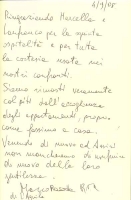 4/9/05
Ringraziando Marcello e
Gianfranco per la squisita
ospitalità e per tutta
la cortesia usata nei
nostri confronti.
Siamo rimasti veramente
colpiti dall'accoglienza
degli appartamenti, proprio
come fossimo a casa.
Venendo di nuovo ad Anzio
non mancheremo di usufruire
di nuovo della loro
gentilezza.